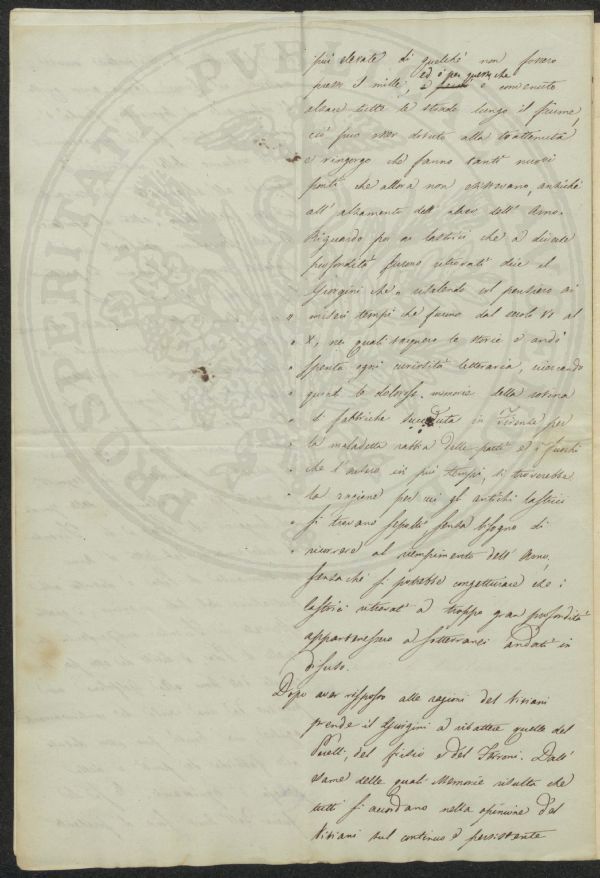 più elevate di quelchè non fossero
presso I mille, ed è per questo che è convenuto
alzare tutte le strade lungo il fiume,
ciò può esser dovuto alla trattenuta
e ringorgo che fanno tanti nuovi
ponti che allora non esistevano, anzichè
all' alzamento dell' alveo dell' Arno.
Riguardo poi ai lastrici che a diverse
profondità furono ritrovati dice il
Giorgini che " risalendo col pensiero ai
" miseri tempi che furono dal secolo VI al
" X, nei quali tacquero le storie e andò
" spenta ogni curiosità letteraria, ricercando
" quindi le dolorose memorie della rovina
" di fabbriche succeduta in Firenze per
" la maladetta rabbia delle parti ed i fuochi
" che l'arsero in più tempi, si troverebbe
" la ragione, per cui gli antichi lastrici
" si trovano sepolti senza bisogno di
" ricorrere al riempimento dell' Arno,
senzachè si potrebbe congetturare che i
lastrici ritrovati a troppo gran profondità
appartenessero a sotterranei andati in
disuso.
Dopo aver risposto alle ragioni del Viviani
prende il Giorgini a ribattere quelle del
Perelli, del Frisio e del Ferroni. Dall'
esame delle quali Memorie risulta che
tutti si accordano nella opinione del
Viviani sul continuo e persistente
PROSPERITATI PUBL